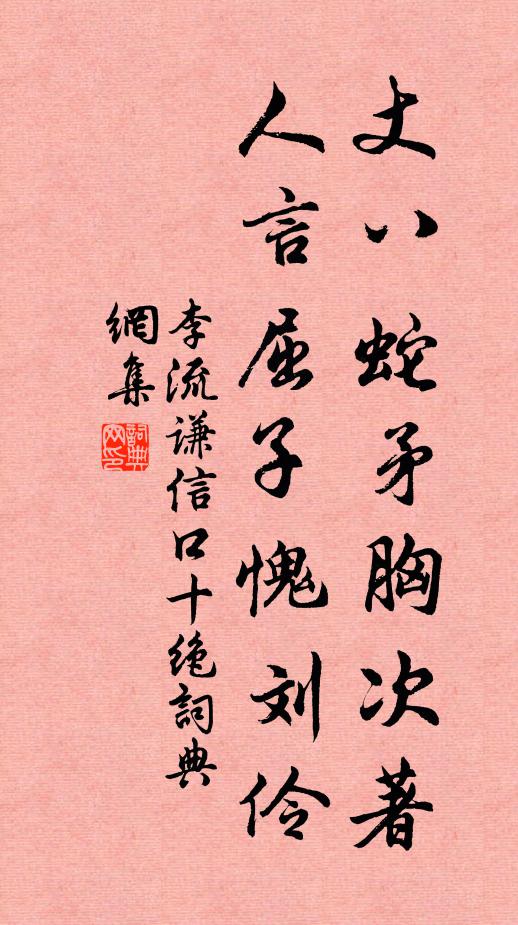 丈八蛇矛胸次著
人言屈子愧刘伶
李流谦信口十绝詞典
網集
詞典
网印